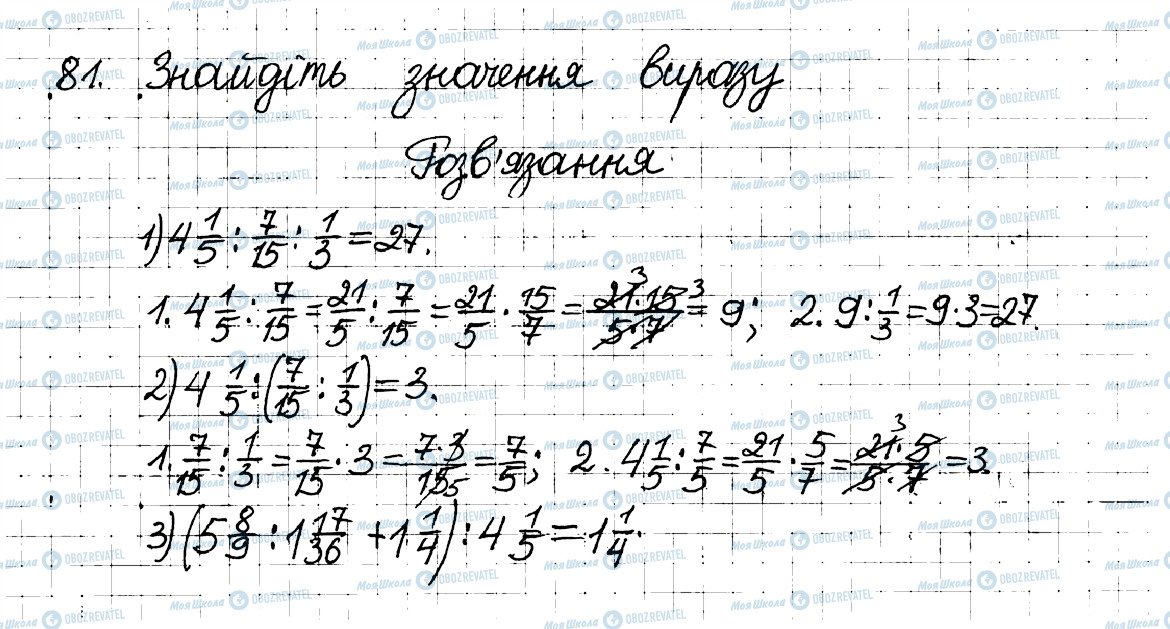 81. Знайдіть значення виразу
Розв'язання
1) 4 1/5 : 7/15 : 1/3 = 27.
1. 4 1/5 : 7/15 = 21/5 : 7/15 = 21/5 · 15/7 = 21·15/5·7 = 9; 2. 9 : 1/3 = 9·3 = 27.
2) 4 1/5 : (7/15 : 1/3) = 3.
1. 7/15 : 1/3 = 7/15 · 3 = 7·3/15 = 7/5; 2. 4 1/5 : 7/5 = 21/5 · 5/7 = 21·5/5·7 = 3.
3) (5 8/9 : 1 17/36 + 1 1/4) : 4 1/5 = 1 1/4.
МояШкола OBOZREVATEL